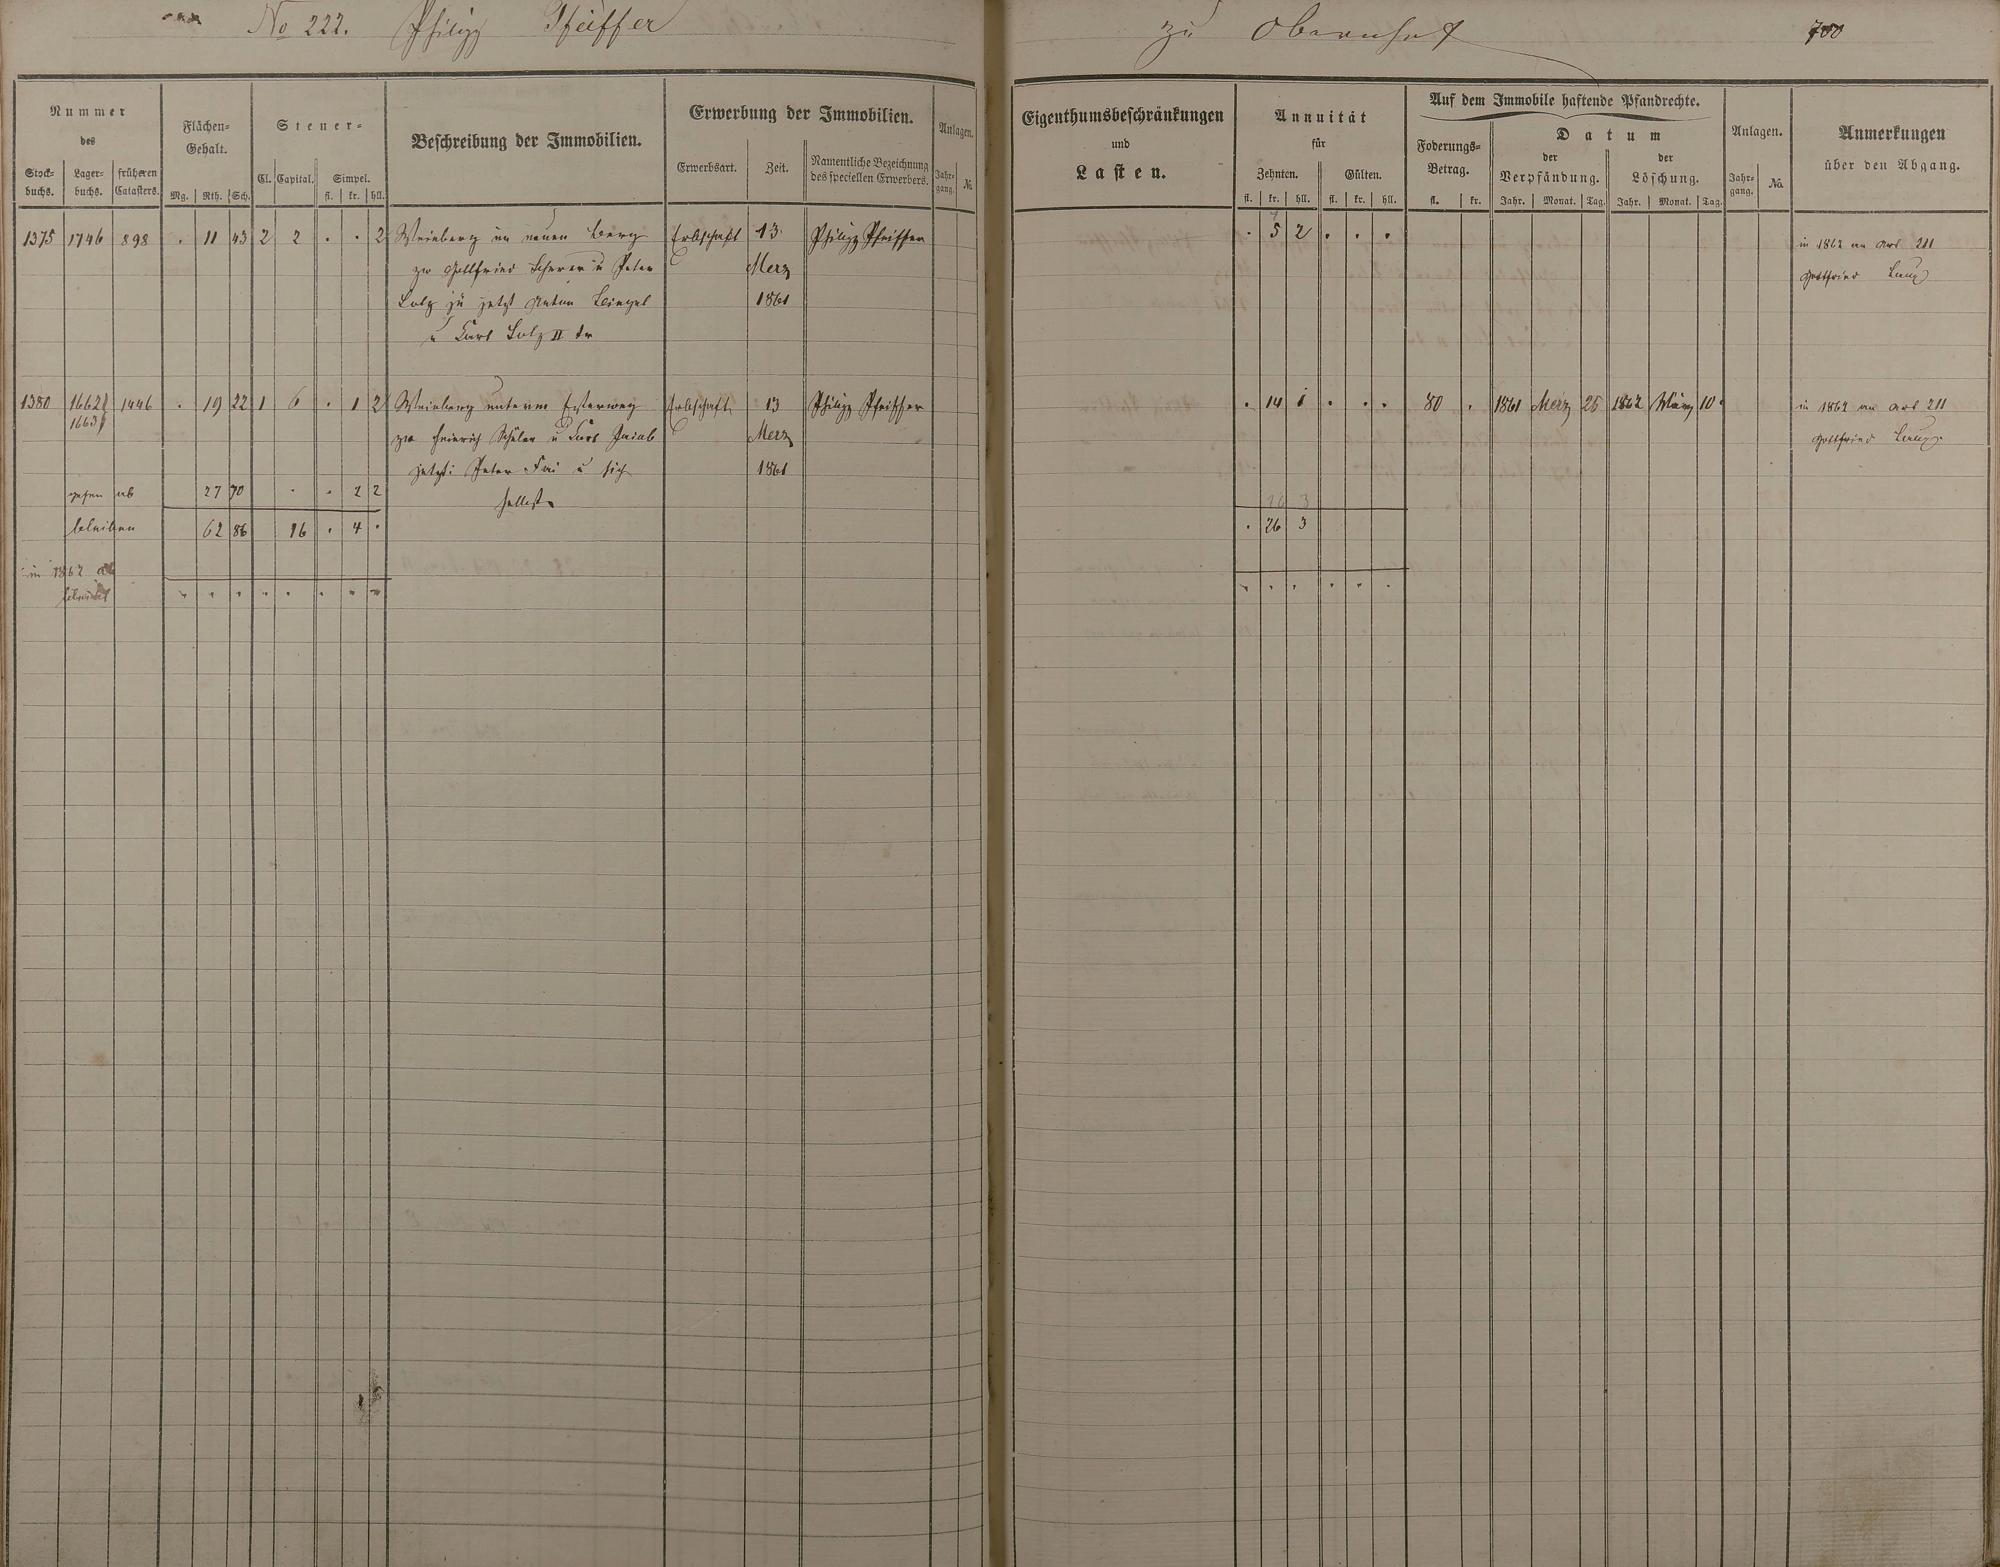 No 222. Philipp Pfeiffer zu Obernhof 700
Nummer
des
Stock-buchs. Lager-buchs. früheren Catasters.
Flächen-Gehalt.
Mg. Rth. Sch.
Steuer-
Cl. Capital. Simpel.
fl. kr. hll.
Beschreibung der Immobilien.
Erwerbung der Immobilien.
Erwerbsart. Zeit. Namentliche Bezeichnung des speciellen Erwerbers.
Anlagen.
Jahr-gang. No.
Eigenthumsbeschränkungen
und
Lasten.
Annuität
für
Zehnten. Gülten.
fl. kr. hll. fl. kr. hll.
Auf dem Immobile haftende Pfandrechte.
Foderungs-Betrag.
fl. kr.
Datum
der Verpfändung. der Löschung.
Jahr. Monat. Tag. Jahr. Monat. Tag.
Anlagen.
Jahr-gang. No.
Anmerkungen
über den Abgang.
1375 1746 898 . 11 43 2 2 . . 2 Weinberg im neuen Berg Erbschaft 13 Philipp Pfeiffer . 5 2 . . . in 1862 an Art 211
zw Gottfried Scherer u Peter Merz Gottfried
zu jetzt Anton 1861
u Carl II
1380 1662 1446 . 19 22 1 6 . 1 2 Weinberg unterm Erbschaft 13 Philipp Pfeiffer . 14 1 . . . 80 . 1861 Merz 25 1862 März 10 in 1862 an Art 211
1663
zw Heinrich u Carl Jacob Merz Gottfried
jetzt: Peter u sich 1861
gehen ab 27 70 . . 2 2 selbst 26 3
bleiben 62 86 16 . 4 . . 26 3
in 1862 ab